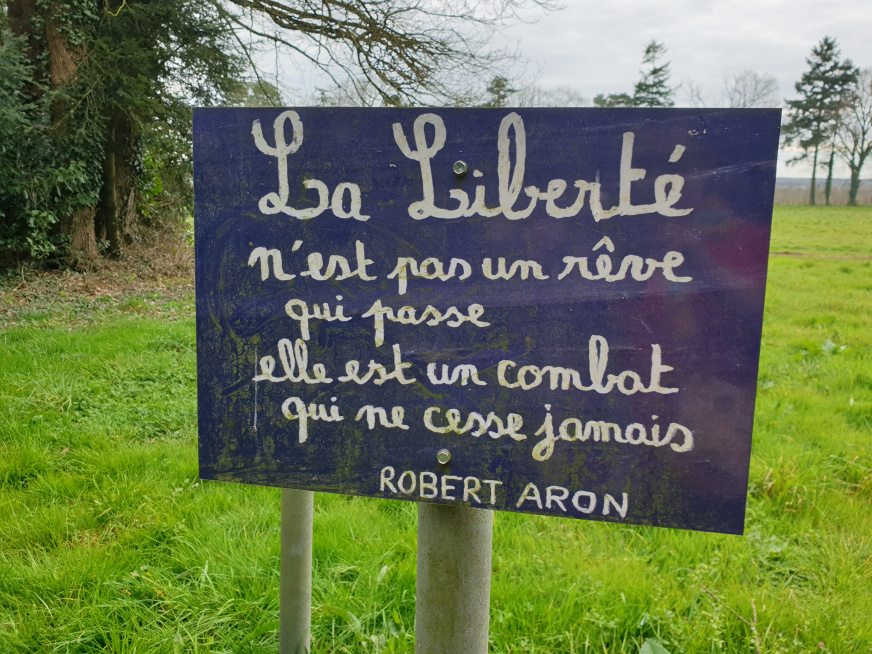 La Liberté
n'est pas un rêve
qui passe
elle est un combat
qui ne cesse jamais
ROBERT ARON